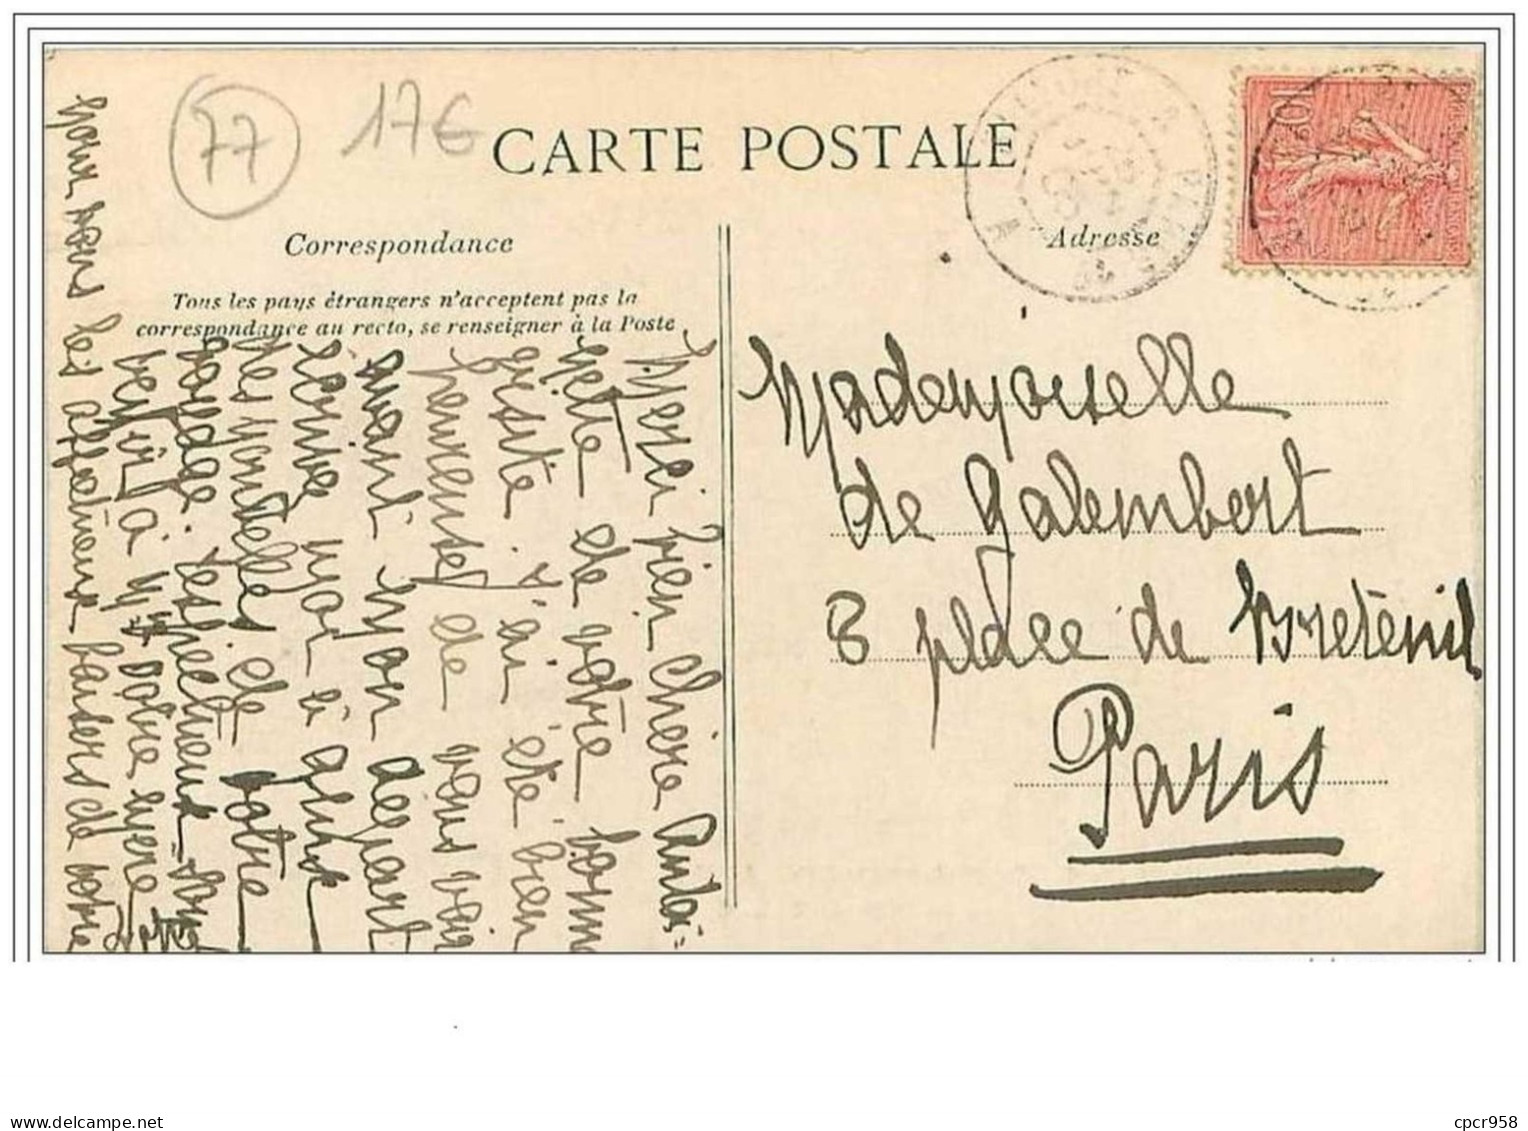 77 17€
CARTE POSTALE
Correspondance
Adresse
Tous les pays étrangers n'acceptent pas la
correspondance au recto, se renseigner à la Poste
Merci bien chère Antoi=
nette de votre bonne
visite. j'ai été bien
heureuse de vous voir
avant mon départ
Ecrivez moi à
des nouvelles de votre
voyage. respectueux
à Mme votre mère
pour vous les affectueux baisers de votre
Mademoiselle
de Galembert
3 place de Breteuil
Paris
10
cpcr958